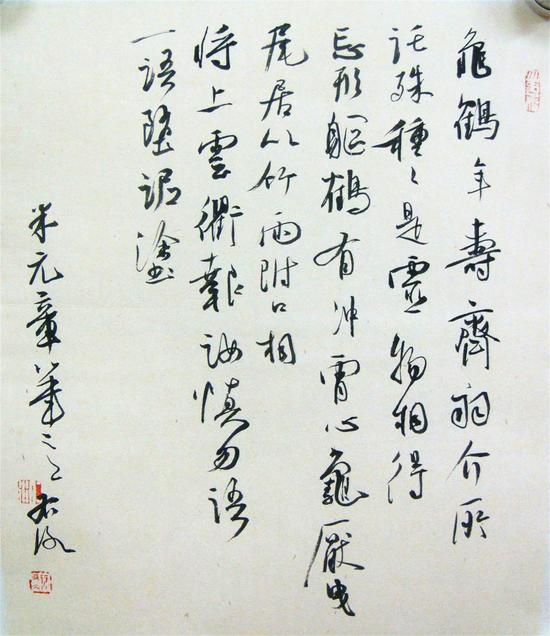 龜鶴年壽齊羽介所
託殊種々是靈物相得
忘形軀鶴有冲霄心龜厭曳
尾居以竹兩附口相
將上雲衢報汝慎勿語
一語墮泥塗
米元章筆